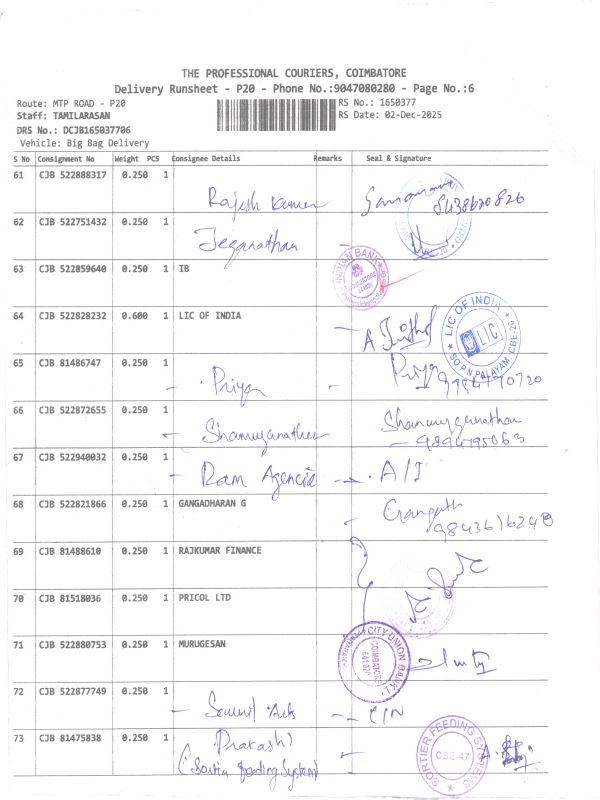 THE PROFESSIONAL COURIERS, COIMBATORE
Delivery Runsheet - P20 - Phone No.:9047080280 - Page No.:6
Route: MTP ROAD - P20 RS No.: 1650377
Staff: TAMILARASAN RS Date: 02-Dec-2025
DRS No.: DCJB165037706
Vehicle: Big Bag Delivery
S No Consignment No Weight PCS Consignee Details Remarks Seal & Signature
61 CJB 522888317 0.250 1
Rajesh Kumar 8438620826
62 CJB 522751432 0.250 1
Jeganathan
63 CJB 522859640 0.250 1 IB
INDIAN BANK
COIMBATORE
64 CJB 522828232 0.600 1 LIC OF INDIA
LIC OF INDIA
LIC
SO P.N.PALAYAM, CBE-20
65 CJB 81486747 0.250 1
- Priya - Priya
66 CJB 522872655 0.250 1
- Shanmuganathan Shanmuganathan
- 9894795063
67 CJB 522940032 0.250 1
- Ram Agencies - A/I
68 CJB 522821866 0.250 1 GANGADHARAN G
69 CJB 81488610 0.250 1 RAJKUMAR FINANCE
70 CJB 81518036 0.250 1 PRICOL LTD
71 CJB 522880753 0.250 1 MURUGESAN
CITY UNION BANK
COIMBATORE
72 CJB 522877749 0.250 1
Arts
73 CJB 81475838 0.250 1
Prakash
(Sortier Feeding System)
SORTIER FEEDING SYSTEMS
CBE-47